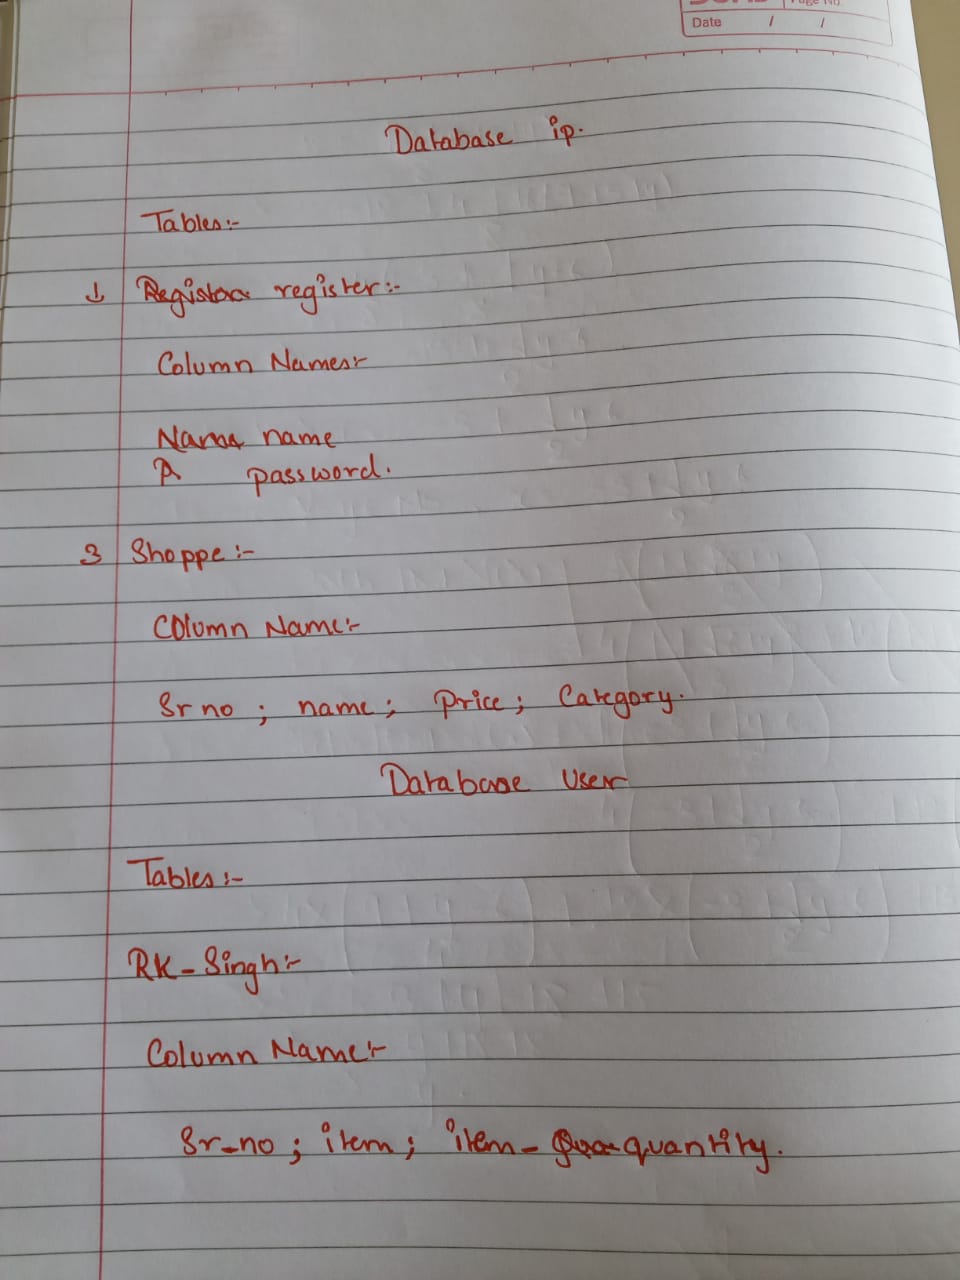 Page No.
Date / /
Database ip.
Tables:-
1 register:-
Column Names:-
name
password.
3 Shoppe:-
Column Name:-
Sr no ; name ; Price ; Category.
Database User
Tables:-
RK-Singh:-
Column Name:-
Sr-no ; item ; item-quantity.